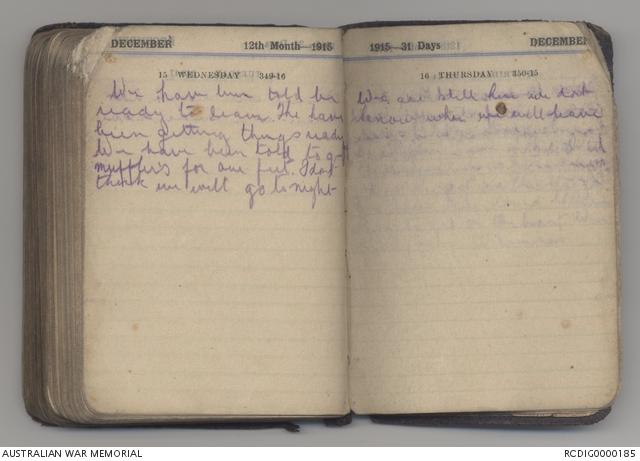 DECEMBER 12th Month—1915
15 WEDNESDAY 349-16
We have been told be
ready to leave. We have
been getting things ready
We have been told to get
mufflers for our feet. I dont
think we will go to night
1915—31 Days DECEMBER
16 THURSDAY 350-15
We are still here we dont
know when we will leave
AUSTRALIAN WAR MEMORIAL
RCDIG0000185